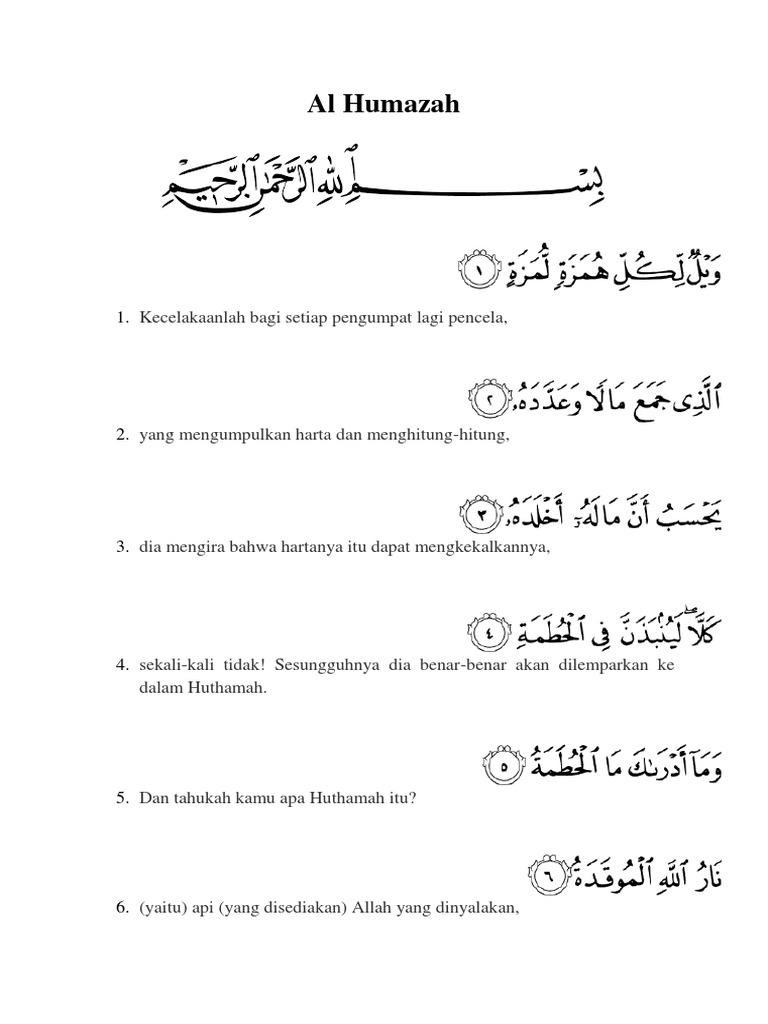 Al Humazah
بِسْمِ ٱللَّهِ ٱلرَّحْمَٰنِ ٱلرَّحِيمِ
وَيْلٌ لِّكُلِّ هُمَزَةٍ لُّمَزَةٍ ١
1. Kecelakaanlah bagi setiap pengumpat lagi pencela,
ٱلَّذِى جَمَعَ مَالًا وَعَدَّدَهُۥ ٢
2. yang mengumpulkan harta dan menghitung-hitung,
يَحْسَبُ أَنَّ مَالَهُۥٓ أَخْلَدَهُۥ ٣
3. dia mengira bahwa hartanya itu dapat mengkekalkannya,
كَلَّا ۖ لَيُنۢبَذَنَّ فِى ٱلْحُطَمَةِ ٤
4. sekali-kali tidak! Sesungguhnya dia benar-benar akan dilemparkan ke
dalam Huthamah.
وَمَآ أَدْرَىٰكَ مَا ٱلْحُطَمَةُ ٥
5. Dan tahukah kamu apa Huthamah itu?
نَارُ ٱللَّهِ ٱلْمُوقَدَةُ ٦
6. (yaitu) api (yang disediakan) Allah yang dinyalakan,